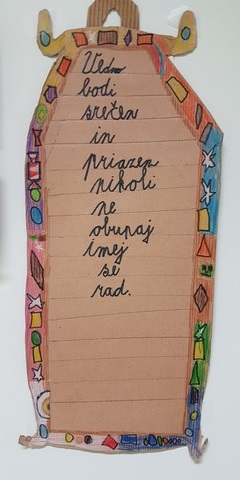 Vedno
bodi
srečen
in
prijazen
nikoli
ne
obupaj
imej
se
rad.